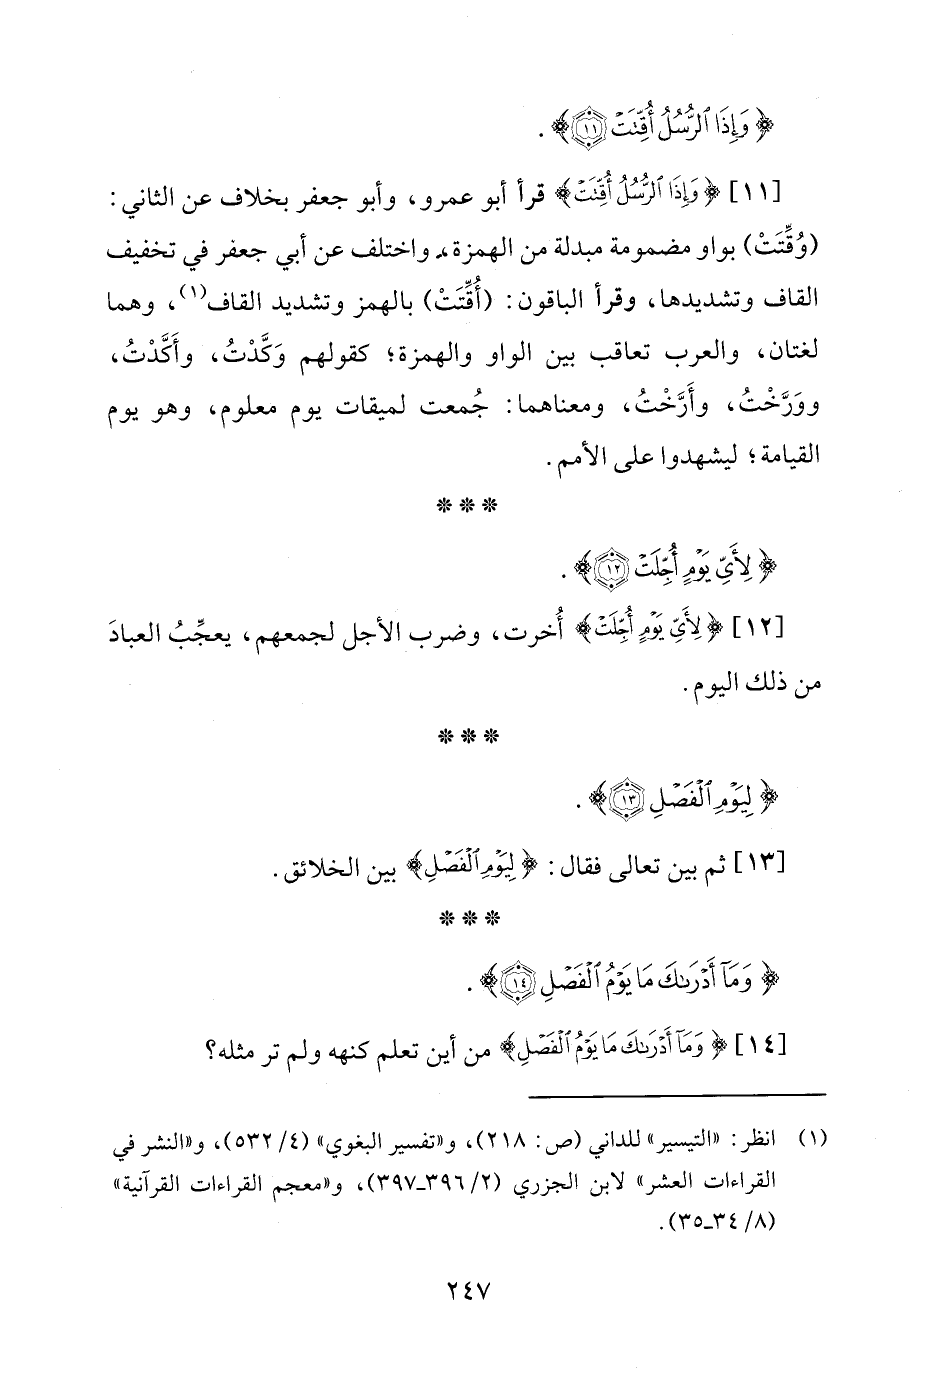 ﴿ وَإِذَا ٱلرُّسُلُ أُقِّتَتۡ ١١ ﴾ .
[١١] ﴿ وَإِذَا ٱلرُّسُلُ أُقِّتَتۡ ﴾ قرأ أبو عمرو، وأبو جعفر بخلاف عن الثاني :
(وُقِّتَتْ) بواو مضمومة مبدلة من الهمزة، واختلف عن أبي جعفر في تخفيف
القاف وتشديدها، وقرأ الباقون: (أُقِّتَتْ) بالهمز وتشديد القاف(١)، وهما
لغتان، والعرب تعاقب بين الواو والهمزة؛ كقولهم وَكَّدْتُ، وأَكَّدْتُ،
ووَرَّخْتُ، وأَرَّخْتُ، ومعناهما: جُمعت لميقات يوم معلوم، وهو يوم
القيامة؛ ليشهدوا على الأمم.
* * *
﴿ لِأَيِّ يَوۡمٍ أُجِّلَتۡ ١٢ ﴾ .
[١٢] ﴿ لِأَيِّ يَوۡمٍ أُجِّلَتۡ ﴾ أُخرت، وضرب الأجل لجمعهم، يعجِّبُ العبادَ
من ذلك اليوم.
* * *
﴿ لِيَوۡمِ ٱلۡفَصۡلِ ١٣ ﴾ .
[١٣] ثم بين تعالى فقال: ﴿ لِيَوۡمِ ٱلۡفَصۡلِ ﴾ بين الخلائق.
* * *
﴿ وَمَآ أَدۡرَىٰكَ مَا يَوۡمُ ٱلۡفَصۡلِ ١٤ ﴾ .
[١٤] ﴿ وَمَآ أَدۡرَىٰكَ مَا يَوۡمُ ٱلۡفَصۡلِ ﴾ من أين تعلم كنهه ولم تر مثله؟
(١) انظر: «التيسير» للداني (ص: ٢١٨)، و«تفسير البغوي» (٤/ ٥٣٢)، و«النشر في
القراءات العشر» لابن الجزري (٢/ ٣٩٦-٣٩٧)، و«معجم القراءات القرآنية»
(٨/ ٣٤-٣٥).
٢٤٧